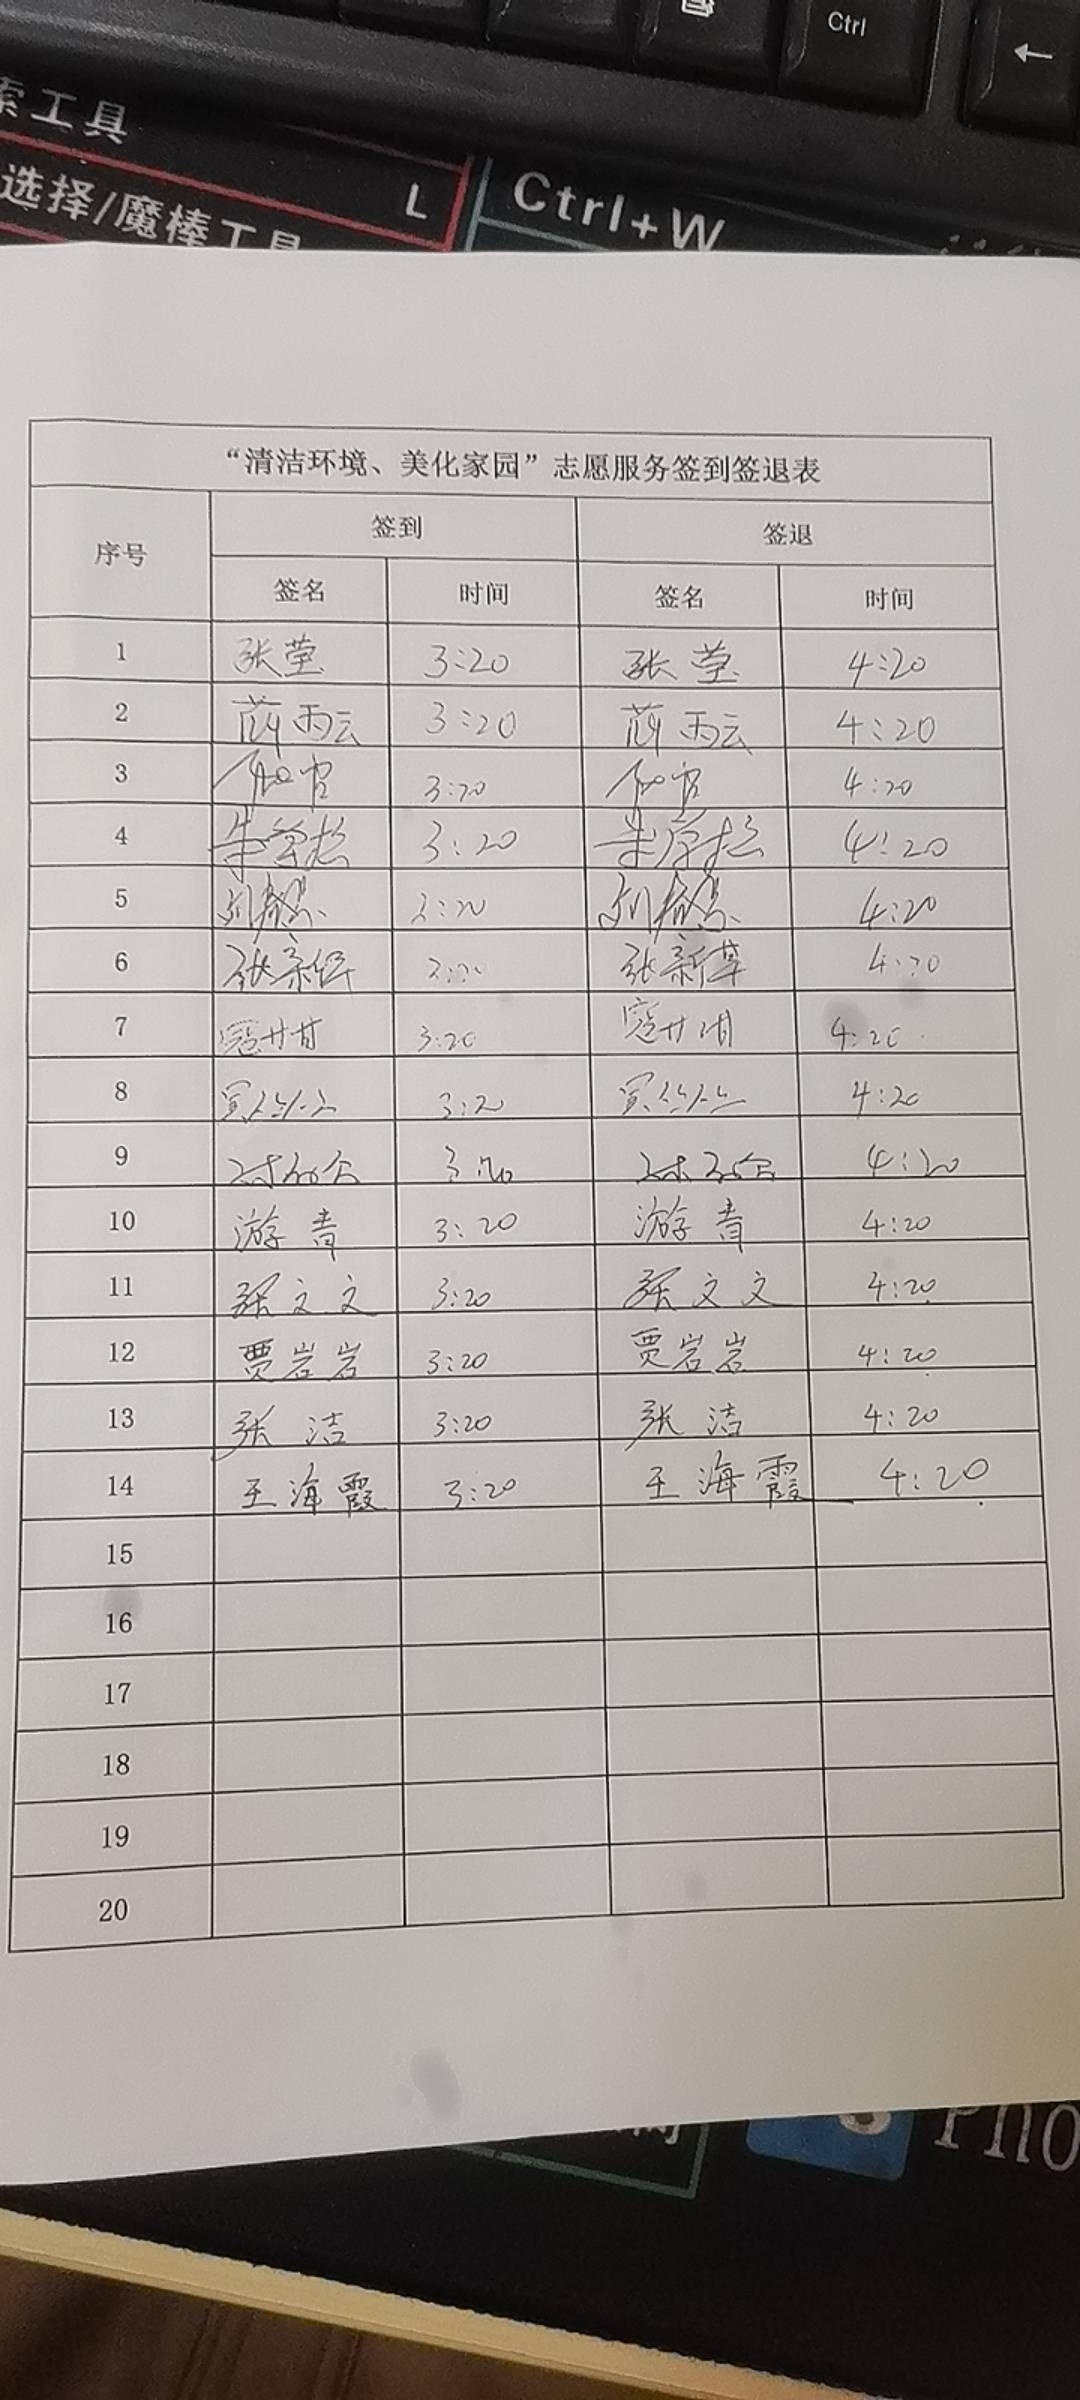 Ctrl
←
索工具
选择/魔棒工具 L
Ctrl+W
“清洁环境、美化家园”志愿服务签到签退表
序号 签到 签退
签名 时间 签名 时间
1 张莹 3:20 张莹 4:20
2 雨云 3:20 雨云 4:20
3 3:20 4:20
4 朱 3:20 朱 4:20
5 刘 3:20 刘 4:20
6 张新 3:20 张新 4:20
7 寇 3:20 寇 4:20
8 3:20 4:20
9 3:20 4:20
10 游青 3:20 游青 4:20
11 张文文 3:20 张文文 4:20
12 贾岩岩 3:20 贾岩岩 4:20
13 张洁 3:20 张洁 4:20
14 王海霞 3:20 王海霞 4:20
15
16
17
18
19
20
Pho